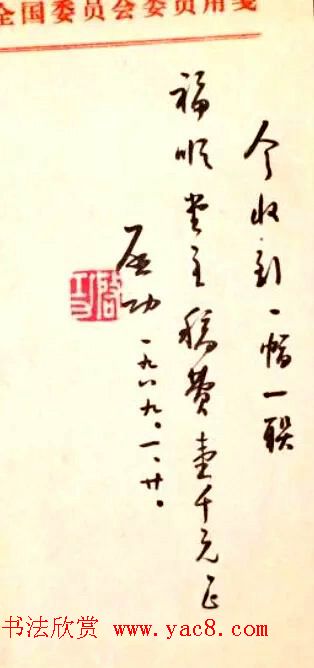 全国委员会委员用笺
今收到一幅一联
福顺堂主稿费壹千元正
启功 一九八九.一.廿.
啓功
书法欣赏 www.yac8.com